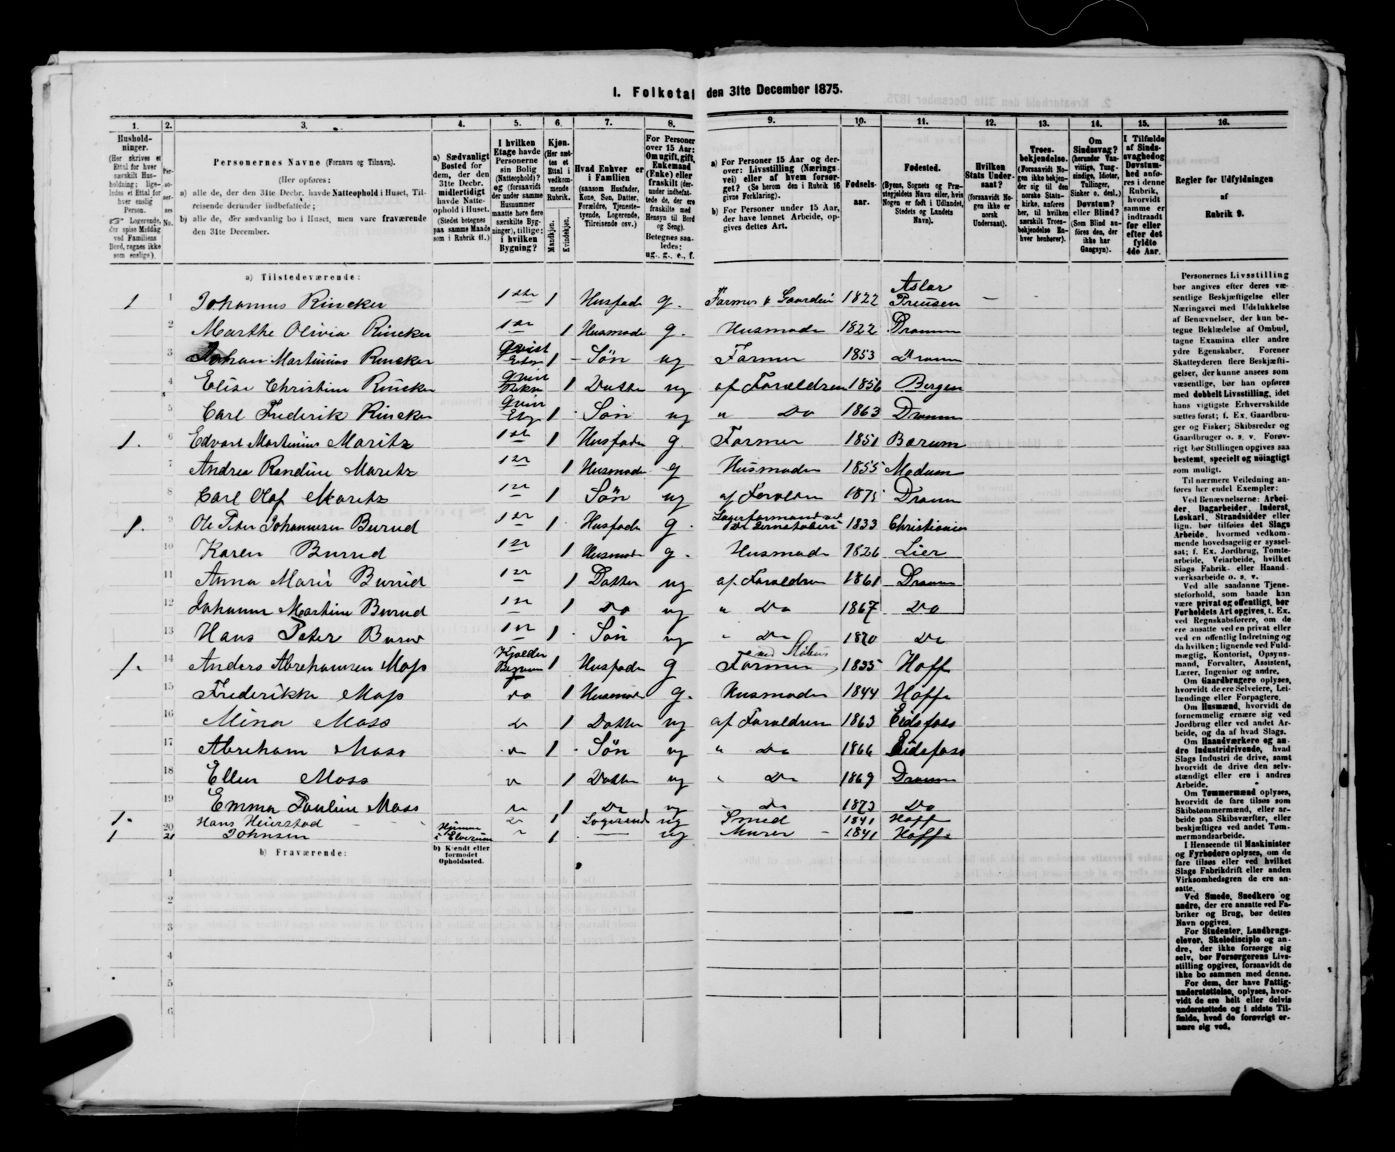 1. Folketal den 31te December 1875.
1. Husholdninger. (Her skrives et Ettal for hver særskilt Husholdning; ligeledes et Ettal for hver enslig Person. Logerende, der spise Middag ved Familiens Bord, regnes ikke som enslige).
2. Personernes No.
3. Personernes Navne (Fornavn og Tilnavn).
(Her opføres:
a) alle de, der den 31te Decbr. havde Natteophold i Huset, Tilreisende derunder indbefattede;
b) alle de, der sædvanlig bo i Huset, men vare fraværende den 31te December.
4. a) Sædvanligt Bosted for dem, der den 31te Decbr. midlertidigt havde Natteophold i Huset. (Stedet betegnes paa samme Maade som i Rubrik 11.)
5. I hvilken Etage havde Personerne sin Bolig (Natteophold)?
6. Kjøn. (Her sættes et Ettal i vedkommende Rubrik. Mandkjøn. Kvindekjøn.
7. Hvad Enhver er i Familien (saasom Husfader, Kone, Søn, Datter, Forældre, Tjenestetyende, Logerende, Tilreisende osv.)
8. For Personer over 15 Aar: Om ugift, gift, Enkemand (Enke) eller fraskilt
Betegnes saaledes: ug., g., e., f.
9. a) For Personer 15 Aar og derover: Livsstilling (Næringsvei) eller af hvem forsørget? (Se herom den i Rubrik 16 givne Forklaring).
b) For Personer under 15 Aar, der have lønnet Arbeide, opgives dettes Art.
10. Fødselsaar.
11. Fødested.
12. Hvilken Stats Undersaat? (forsaavidt Nogen ikke er norsk Undersaat).
13. Troesbekjendelse.
14. Om Sindssvag? Døvstum? eller Blind?
15. I Tilfælde af Sindssvaghed og Døvstumhed anføres i denne Rubrik, hvorvidt samme er indtraadt før eller efter det fyldte 4de Aar.
16. Regler for Udfyldningen af Rubrik 9.
a) Tilstedeværende:
1 1 Johannes Rincker 1 1 Husfader g. 1822 Preusen
2 Marthe Olivia Rincker 1 Husmoder g. Husmoder 1822 Dramm
3 Johan Martinius Rincker Qvist 1 Søn ug Farmer 1853 Dramm
4 Elise Christine Rincker 1 Datter ug af Forældren 1856 Bergen
5 Carl Frederik Rincker 1 Søn ug " Do 1863 Dramm
1. 6 Edvart Martinius Maritz 1 Husfader g Farmer 1851 Bærum
7 Andrea Randine Maritz 1 Husmoder g Husmoder 1855 Modum
8 Carl Olaf Maritz 1 Søn ug af Foreldre 1875 Dramm
1. 9 Ole Peter Johannesen Burud 1 Husfader g. 1833 Christiania
10 Karen Burud 1 Husmoder g. Husmoder 1826 Lier
11 Anna Marie Burud 1 Datter ug af Foreldren 1861 Dramm
12 Johanne Martine Burud 1 Do ug " Do 1867 Do
13 Hans Peter Burud 1 Søn ug " Do 1870 Do
1. 14 Anders Abrehamsen Moss Kjelder 1 Husfader g Farmer 1835 Hoff
15 Frederikke Moss do 1 Husmoder g. Husmoder 1844 Hoff
16 Mina Moss 1 Datter ug af Foreldren 1863 Eidsfoss
17 Abreham Moss 1 Søn ug " Do 1866 Eidsfoss
18 Ellen Moss 1 Datter ug " Do 1869 Dramm
19 Emma Pauline Moss 1 Do ug " do 1873 Do
1. 20 Hans 1 Logerende ug Smed 1841 Hoff
1 21 Johnsen i Elverum 1 ug Murer 1841 Hoff
b) Fraværende:
b) Kjendt eller formodet Opholdssted.
1
2
3
4
5
6
Personernes Livsstilling bør angives efter deres væsentlige Beskjæftigelse eller Næringsvei med Udelukkelse af Benævnelser, der kun betegne Beklædelse af Ombud, tagne Examina eller andre ydre Egenskaber. Forener Skatteyderen flere Beskjæftigelser, der kunne ansees som væsentlige, bør han opføres med dobbelt Livsstilling, idet hans vigtigste Erhvervskilde sættes først; f. Ex. Gaardbruger og Fisker; Skibsreder og Gaardbruger o. s. v. Forøvrigt bør Stillingen opgives saa bestemt, specielt og nøiagtigt som muligt.
Til nærmere Veiledning anføres her endel Exempler:
Ved Benævnelserne: Arbeider, Dagarbeider, Inderst, Løskarl, Strandsidder eller lign. bør tilføies det Slags Arbeide, hvormed vedkommende hovedsagelig er sysselsat; f. Ex. Jordbrug, Tomtearbeide, Veiarbeide, hvilket Slags Fabrik- eller Haandværksarbeide o. s. v.
Ved alle saadanne Tjenesteforhold, som baade kan være privat og offentligt, bør Forholdets Art opgives, t. Ex. ved Regnskabsførere, om de ere ansatte ved en privat eller ved en offentlig Indretning og da hvilken; lignende ved Fuldmægtig, Kontorist, Opsynsmand, Forvalter, Assistent, Lærer, Ingeniør og andre.
Om Gaardbrugere oplyses, hvorvidt de ere Selveiere, Leilændinge eller Forpagtere.
Om Husmænd, hvorvidt de fornemmelig ernære sig ved Jordbrug eller ved andet Arbeide, og da af hvad Slags.
Om Haandværkere og andre Industridrivende, hvad Slags Industri de drive, samt hvorvidt de drive den selvstændigt eller ere i andres Arbeide.
Om Tømmermænd oplyses, hvorvidt de fare tilsøs som Skibstømmermænd, eller arbeide paa Skibsværfter, eller beskjæftiges ved andet Tømmermandsarbeide.
I Henseende til Maskinister og Fyrbødere oplyses, om de fare tilsøs eller ved hvilket Slags Fabrikdrift eller anden Virksomhedsgren de ere ansatte.
Ved Smede, Snedkere og andre, der ere ansatte ved Fabriker og Brug, bør dettes Navn opgives.
For Studenter, Landbrugselever, Skoledisciple og andre, der ikke forsørge sig selv, bør Forsørgerens Livsstilling opgives, forsaavidt de ikke bo sammen med denne.
For dem, der have Fattigunderstøttelse, oplyses, hvorvidt de ere helt eller delvis understøttede og i sidste Tilfælde, hvad de forøvrigt ernære sig ved.